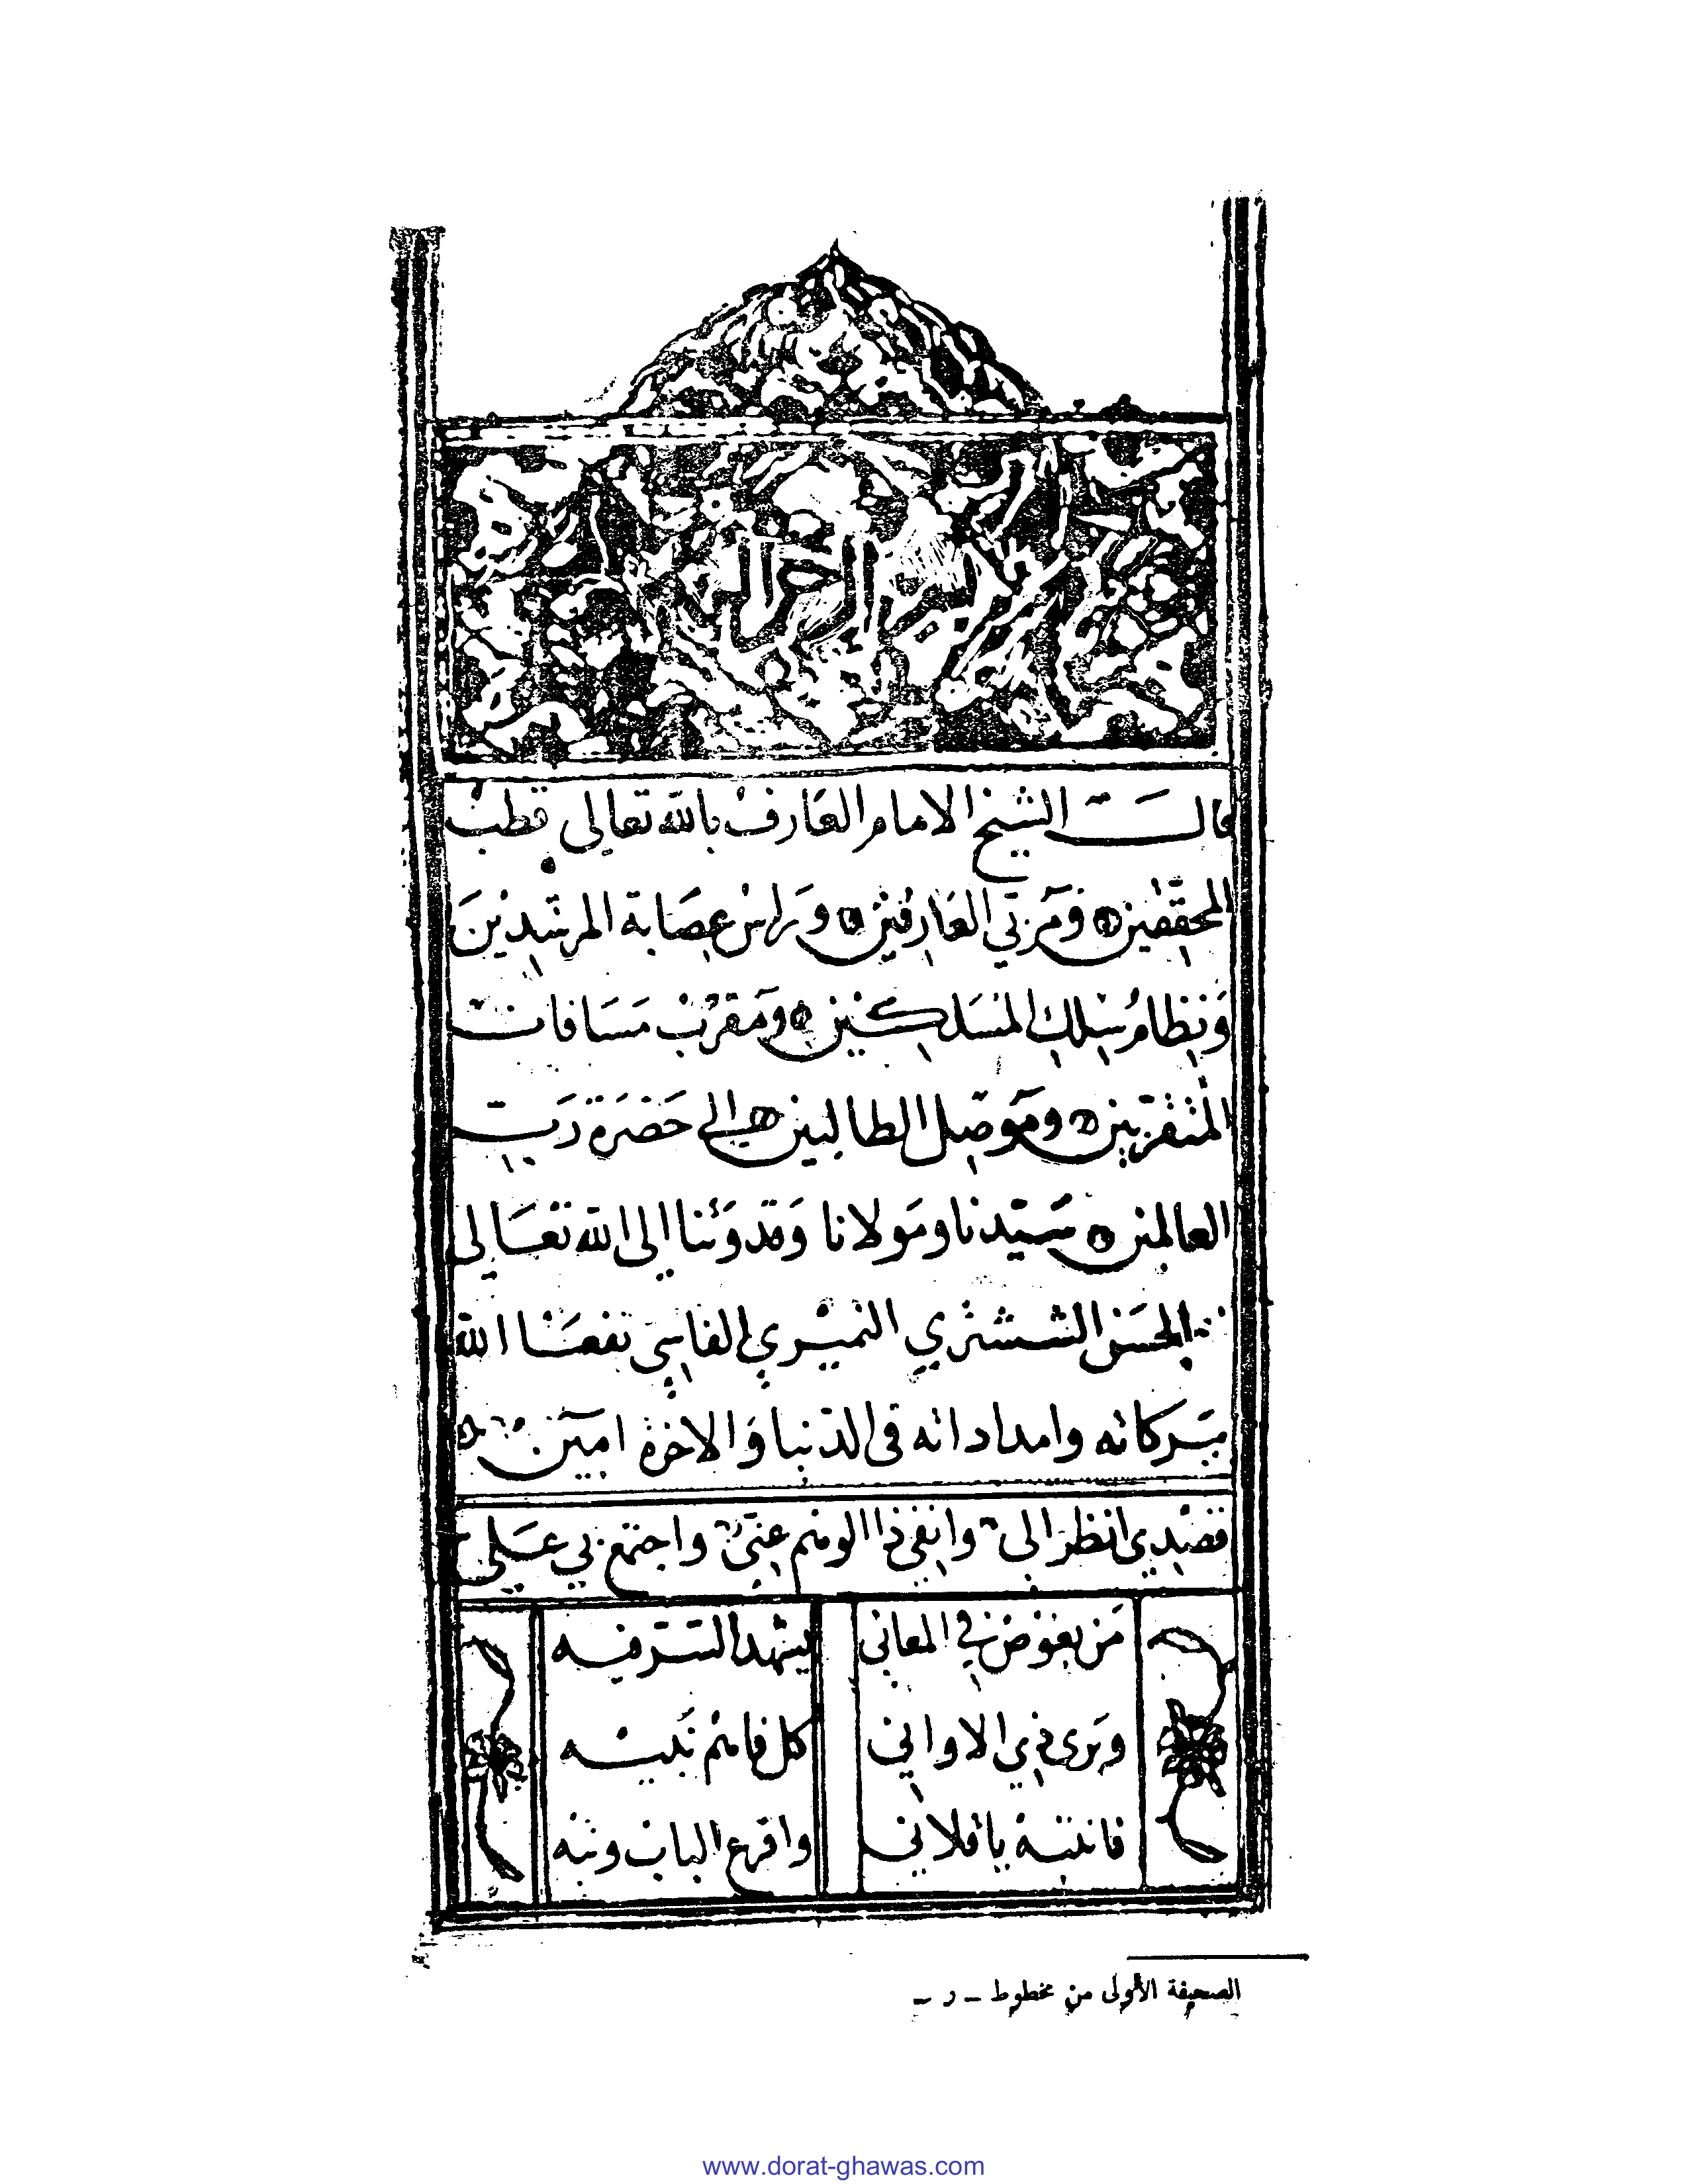 قالت الشيخ الامام العارف بالله تعالى قطب
المحققين ومربي العارفين وراس عصابة المرشدين
ونظام سلك المسلكين ومقرب مسافات
المتقربين وموصل الطالبين الى حضرة رب
العالمين سيدنا ومولانا وقدوتنا الى الله تعالى
الحسن الششتري النميري الفاسي نفعنا الله
ببركاته وامداداته في الدنيا والاخرة امين
قصدي انظر الي وانفي ذا الوهم عني واجتمع بي علي
من يغوض في المعاني يشهد السر فيه
ويرى ذي الاواني كل فاهم نبيه
فانتبه يا فلاني واقرع الباب ونبه
الصحيفة الأولى من مخطوط - ر -
www.dorat-ghawas.com